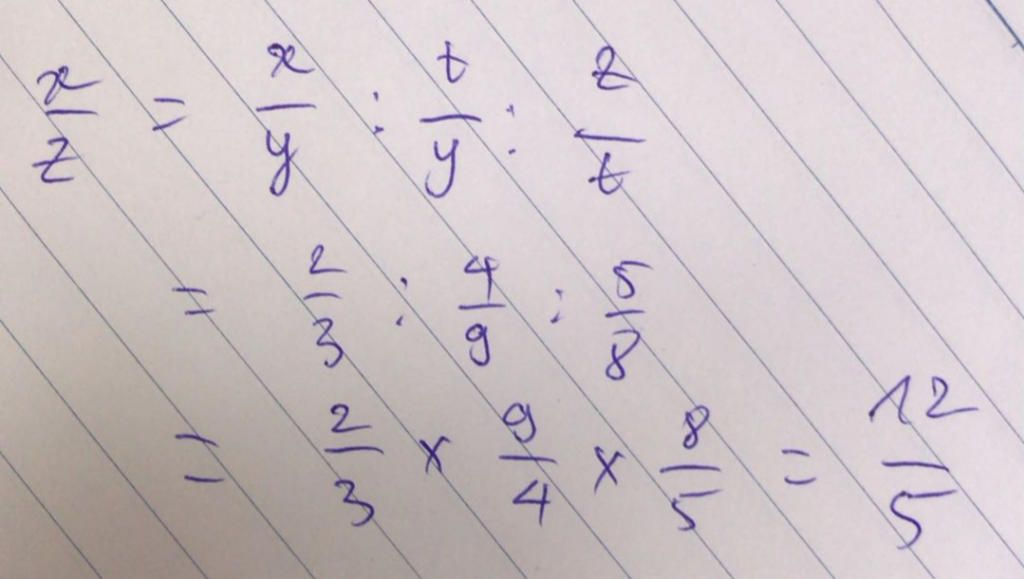 x/z = x/y : t/y : z/t
= 2/3 : 4/9 : 5/8
= 2/3 × 9/4 × 8/5 = 12/5